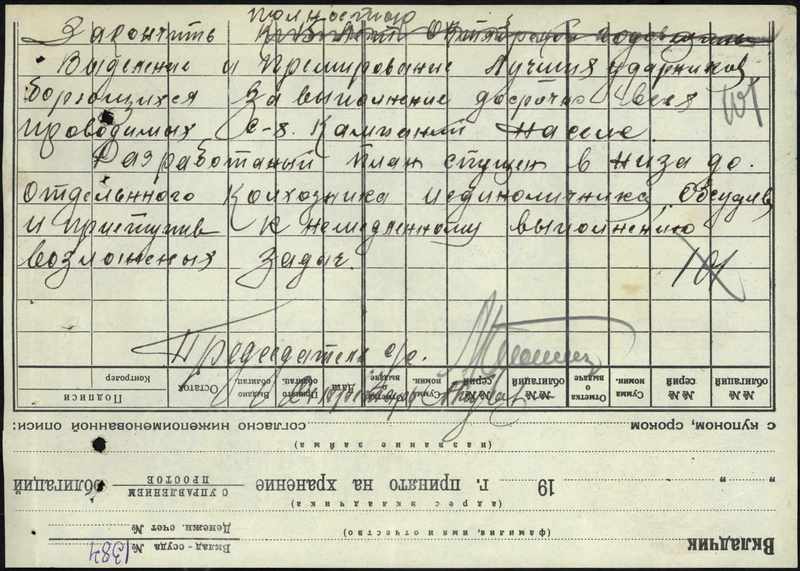 полностью
Закончить к XV лет Октября годовщины
Выделение и премирование лучших ударников
борющихся за выполнение досрочно всех
проводимых с-х. кампаний на селе.
Разработаный план спущен в низа до.
отдельнного колхозника и единоличника, обсудив
и приступив к немедленному выполнению
возложеных задач.
Председатель с/с.
Секретарь
№№ облигаций
№№ серий
Сумма номин.
Отметка о выдаче
№№ облигаций
№№ серий
Сумма номин.
Дата
Принято облигац.
Выдано облигац.
Остаток
Подписи
Контролер
с купоном, сроком
согласно нижепоименованной описи:
(название займа)
" " 19 г. принято на хранение
с управлением
простое
облигаций
(адрес вкладчика)
(фамилия, имя и отчество)
Вкладчик
Денежн. счет №
Вклад-ссуда №
1384